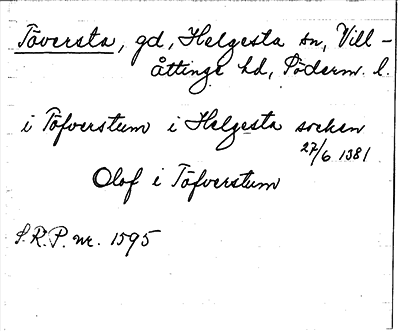 Töversta, gd, Helgesta sn, Vill-
åttinge hd, Söderm. l.
i Töfverstum i Helgesta socken
27/6 1381
Olof i Töfverstum
S.R.P. nr. 1595